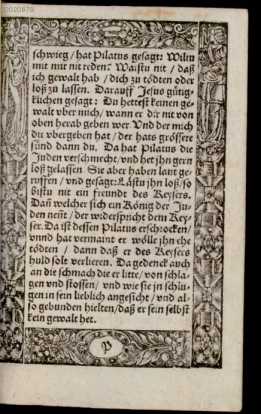 schwieg / hat Pilatus gesagt: Wiltu
mit mir nit reden: Waistu nit / daß
ich gewalt hab / dich zu tödten oder
loß zu lassen. Darauff Jesus gütig-
klichen gesagt: Du hettest keinen ge-
walt vber mich / wann er dir nit von
oben herab geben wer Vnd der mich
dir vbergeben hat / der hats grössere
sünd dann du. Da hat Pilatus die
Juden verschmecht / vnd het jhn gern
loß gelassen Sie aber haben laut ge-
ruffen / vnd gesagt: Lastu jhn loß / so
bistu nit ein freundt des Keysers.
Dañ welcher sich ein König der Ju-
den neñt / der widerspricht dem Key-
ser. Da ist dessen Pilatus erschrocken /
vnnd hat vermaint er wölle jhn ehe
tödten / dann daß er des Keysers
huld solt verlieren. Da gedenck auch
an die schmach die er litte / von schla-
gen vnd stossen / vnd wie sie jn schlu-
gen in sein lieblich angesicht / vnd al-
so gebunden hielten / daß er sein selbst
kein gewalt het.
P